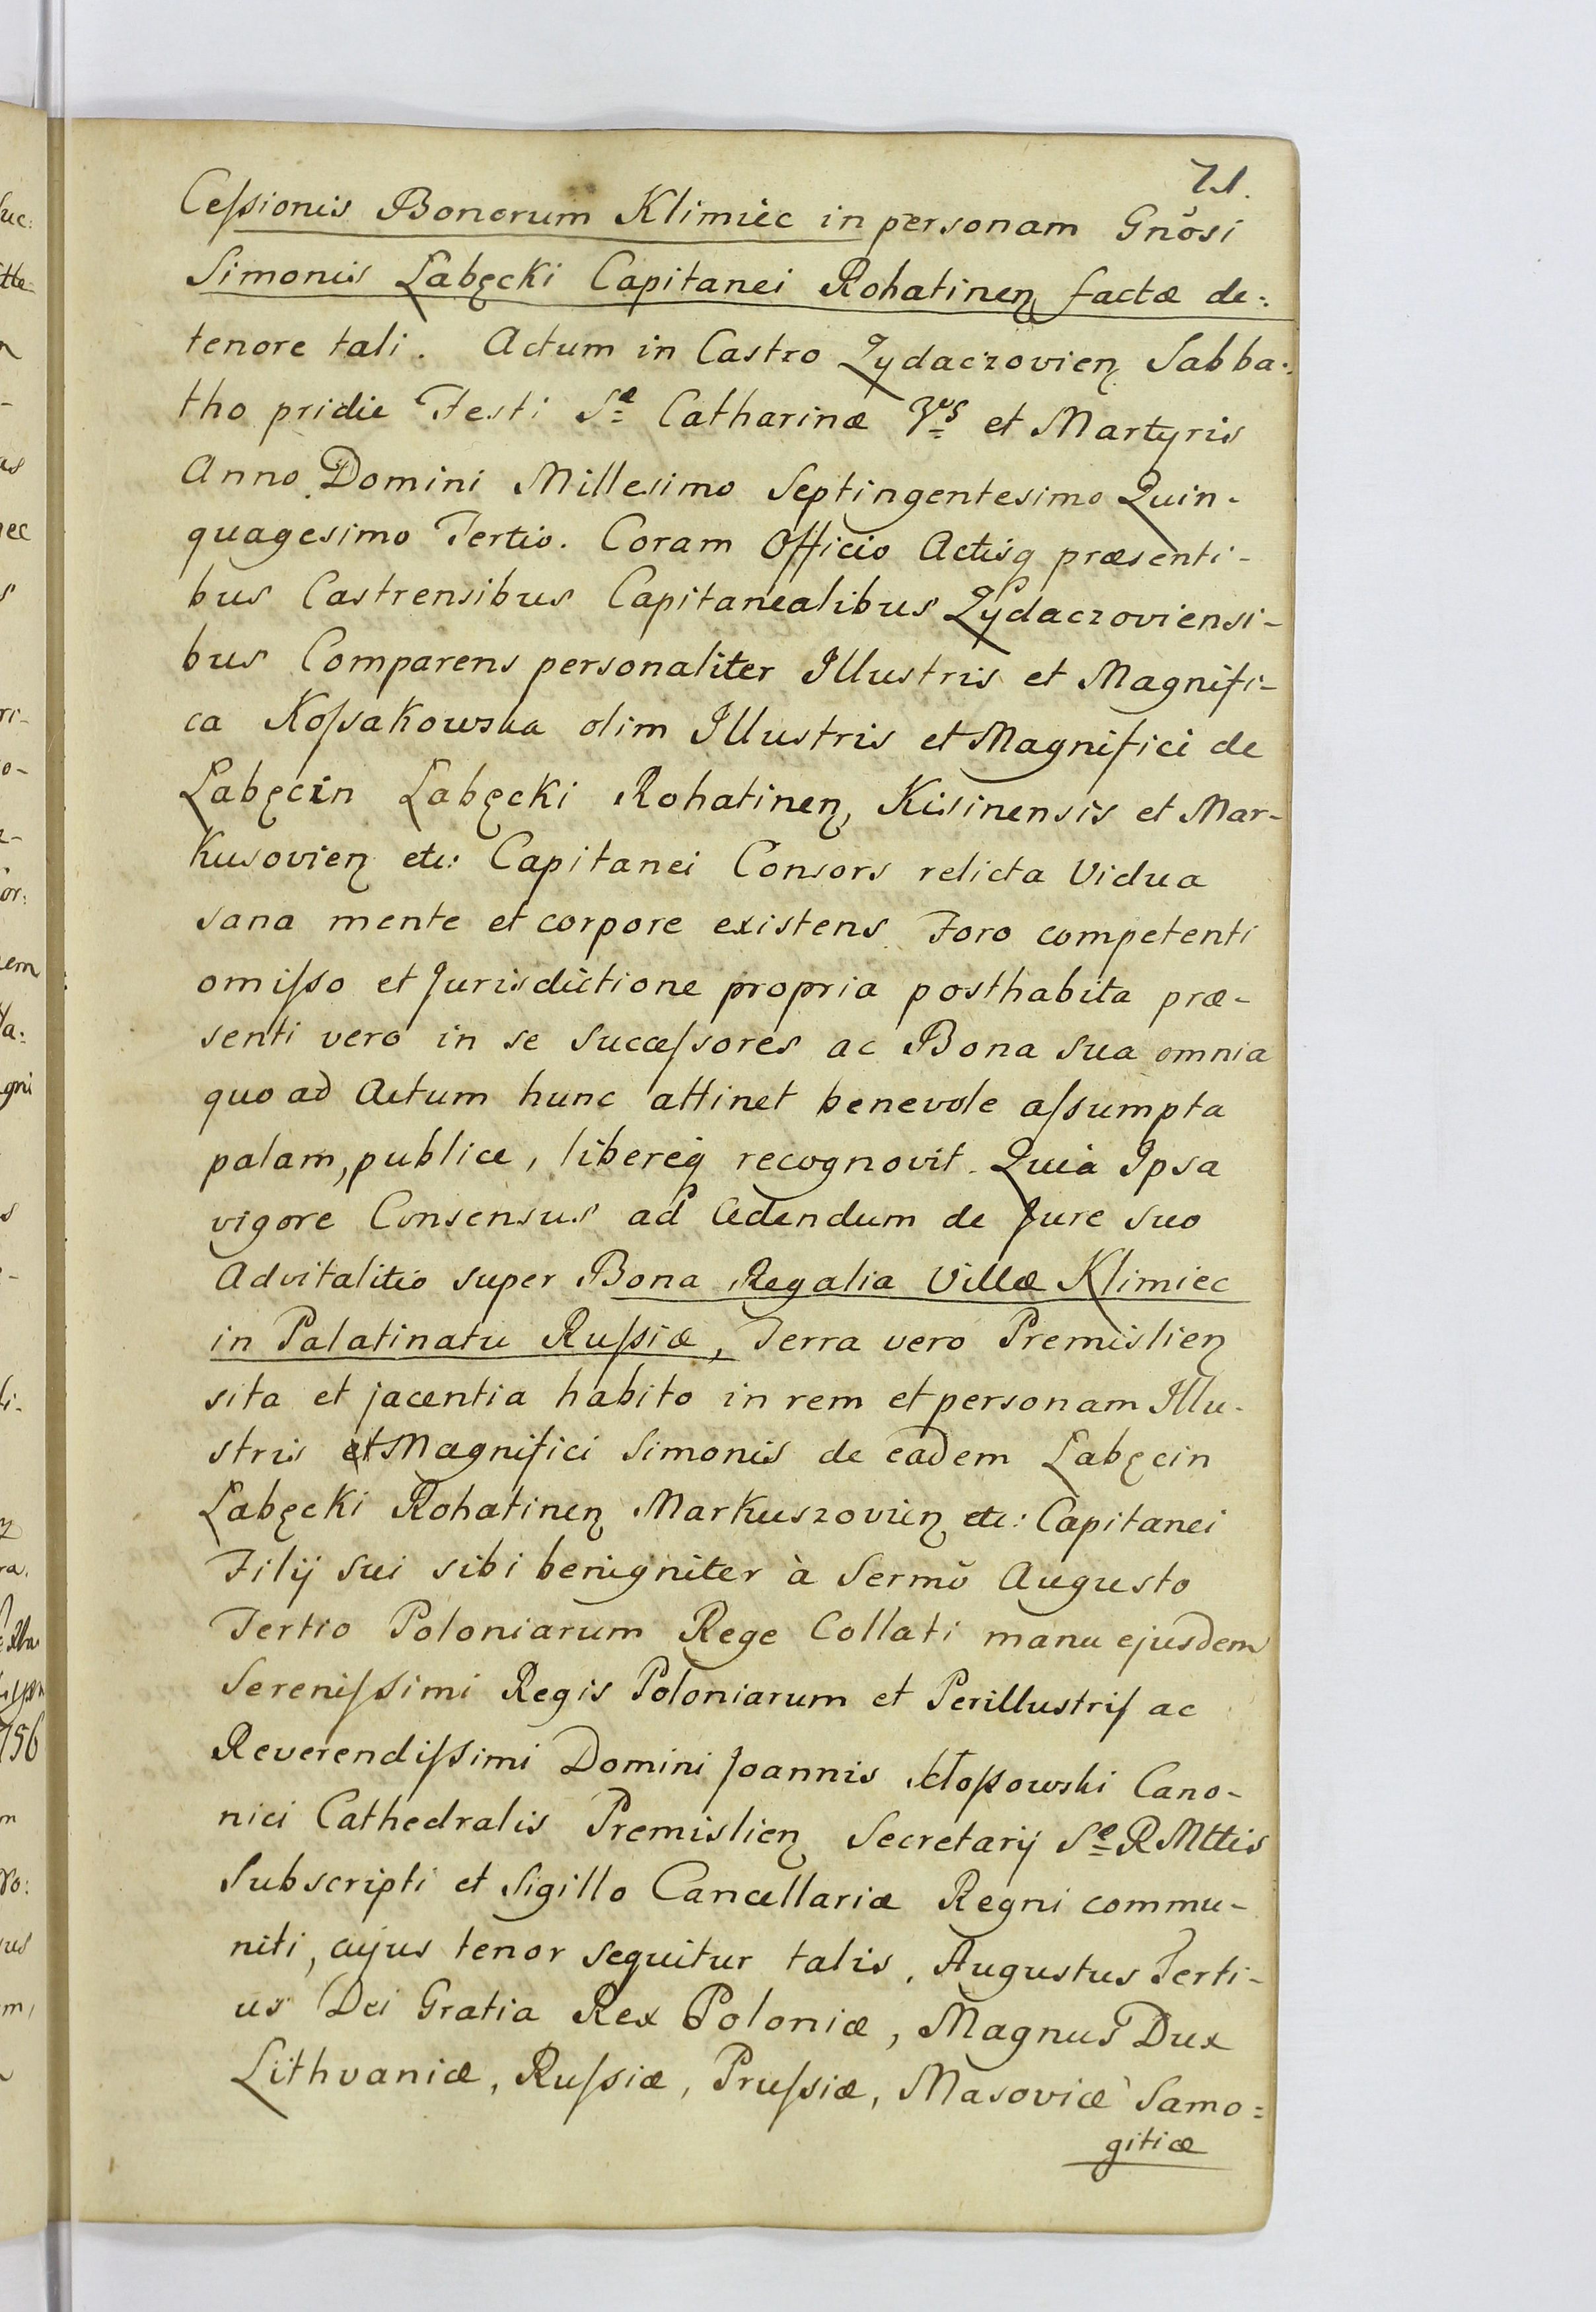 71.
Ceſsionis Bonorum Klimiec in personam Gnõsi
Simonis Łabęcki Capitanei Rohatinen factæ de:
tenore tali. Actum in Castro Zydaczovien Sabba:
tho pridie Festi Sæ Catharinæ Vgs et Martyris
Anno Domini Millesimo Septingentesimo Quin-
quagesimo Tertio. Coram Officio Actisq præsenti-
bus Castrensibus Capitanealibus Zydaczoviensi-
bus Comparens personaliter Illustris et Magnifi-
ca Koſsakowska olim Illustris et Magnifici de
Łabęcin Łabęcki Rohatinen, Kisinensis et Mar-
kusovien etc: Capitanei Consors relicta Vidua
sana mente et corpore existens Foro competenti
omiſso et Jurisdictione propria posthabita præ-
senti vero in se Succeſsores ac Bona sua omnia
quo ad Actum hunc attinet benevole aſsumpta
palam, publice, libereq recognovit. Quia Ipsa
vigore Consensus ad Cedendum de Jure suo
Advitalitio super Bona Regalia Villæ Klimiec
in Palatinatu Ruſsiæ, Terra vero Premislien
sita et jacentia habito in rem et personam Illu-
stris et Magnifici Simonis de eadem Łabęcin
Łabęcki Rohatinen Markuszovien etc: Capitanei
Filij sui sibi benigniter à Sermõ Augusto
Tertio Poloniarum Rege Collati manu ejusdem
Sereniſsimi Regis Poloniarum et Perillustriſ ac
Reverendiſsimi Domini Joannis Cano-
nici Cathedralis Premislien Secretarij Sæ RMttis
Subscripti et Sigillo Cancellariæ Regni commu-
niti, cujus tenor sequitur talis. Augustus Terti-
us Dei Gratia Rex Poloniæ, Magnus Dux
Lithvaniæ, Ruſsiæ, Pruſsiæ, Masoviæ Samo=
gitiæ